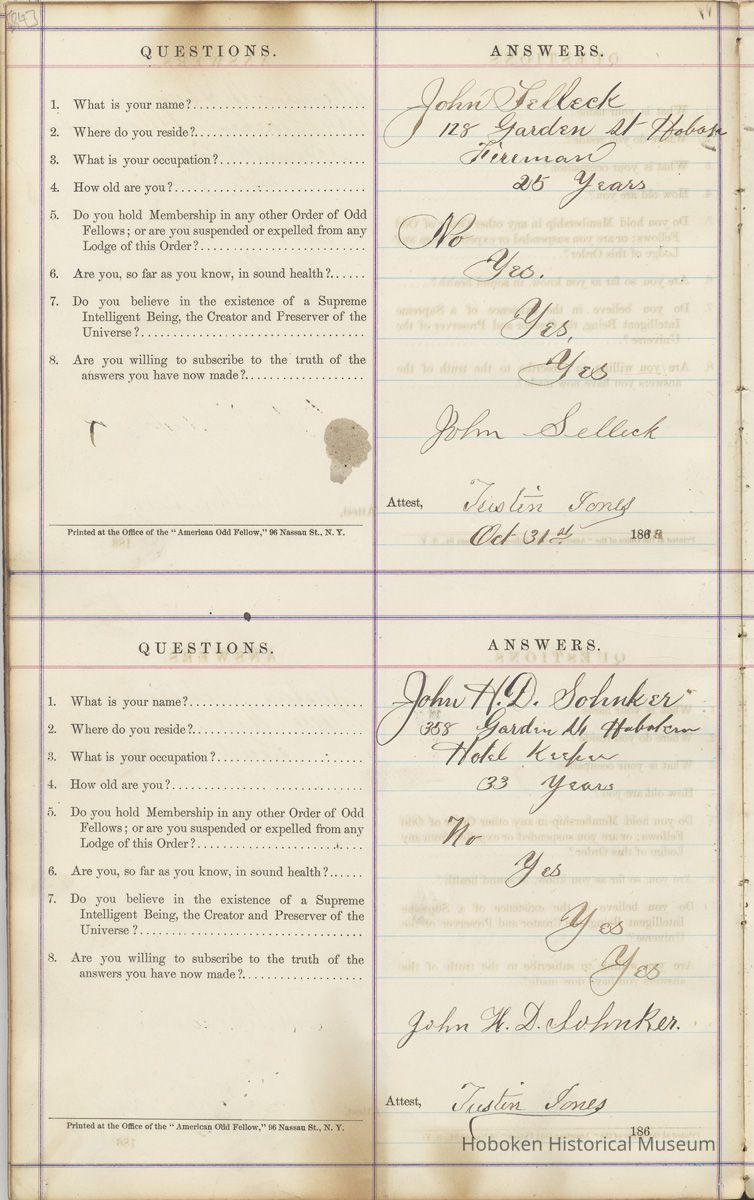 [84]
QUESTIONS.
ANSWERS.
1. What is your name?
John Selleck
2. Where do you reside?
128 Garden St
3. What is your occupation?
Fireman
4. How old are you?
25 Years
5. Do you hold Membership in any other Order of Odd
Fellows; or are you suspended or expelled from any
Lodge of this Order?
No
6. Are you, so far as you know, in sound health?
Yes.
7. Do you believe in the existence of a Supreme
Intelligent Being, the Creator and Preserver of the
Universe?
Yes,
8. Are you willing to subscribe to the truth of the
answers you have now made?
Yes
John Selleck
Attest, Justin Jones
Oct 31st 186
Printed at the Office of the "American Odd Fellow," 96 Nassau St., N. Y.
QUESTIONS.
ANSWERS.
1. What is your name?
John H. D. Sohnker
2. Where do you reside?
358 Garden St Hoboken
3. What is your occupation?
Hotel Keeper
4. How old are you?
33 Years
5. Do you hold Membership in any other Order of Odd
Fellows; or are you suspended or expelled from any
Lodge of this Order?
No
6. Are you, so far as you know, in sound health?
Yes
7. Do you believe in the existence of a Supreme
Intelligent Being, the Creator and Preserver of the
Universe?
Yes
8. Are you willing to subscribe to the truth of the
answers you have now made?
Yes
John H. D. Sohnker.
Attest, Justin Jones
186
Printed at the Office of the "American Odd Fellow," 96 Nassau St., N. Y.
Hoboken Historical Museum